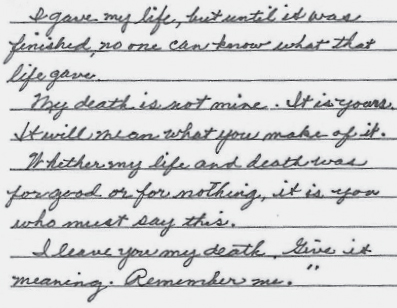 I gave my life, but until it was
finished, no one can know what that
life gave.
My death is not mine. It is yours.
It will mean what you make of it.
Whether my life and death was
for good or for nothing, it is you
who must say this.
I leave you my death. Give it
meaning. Remember me."